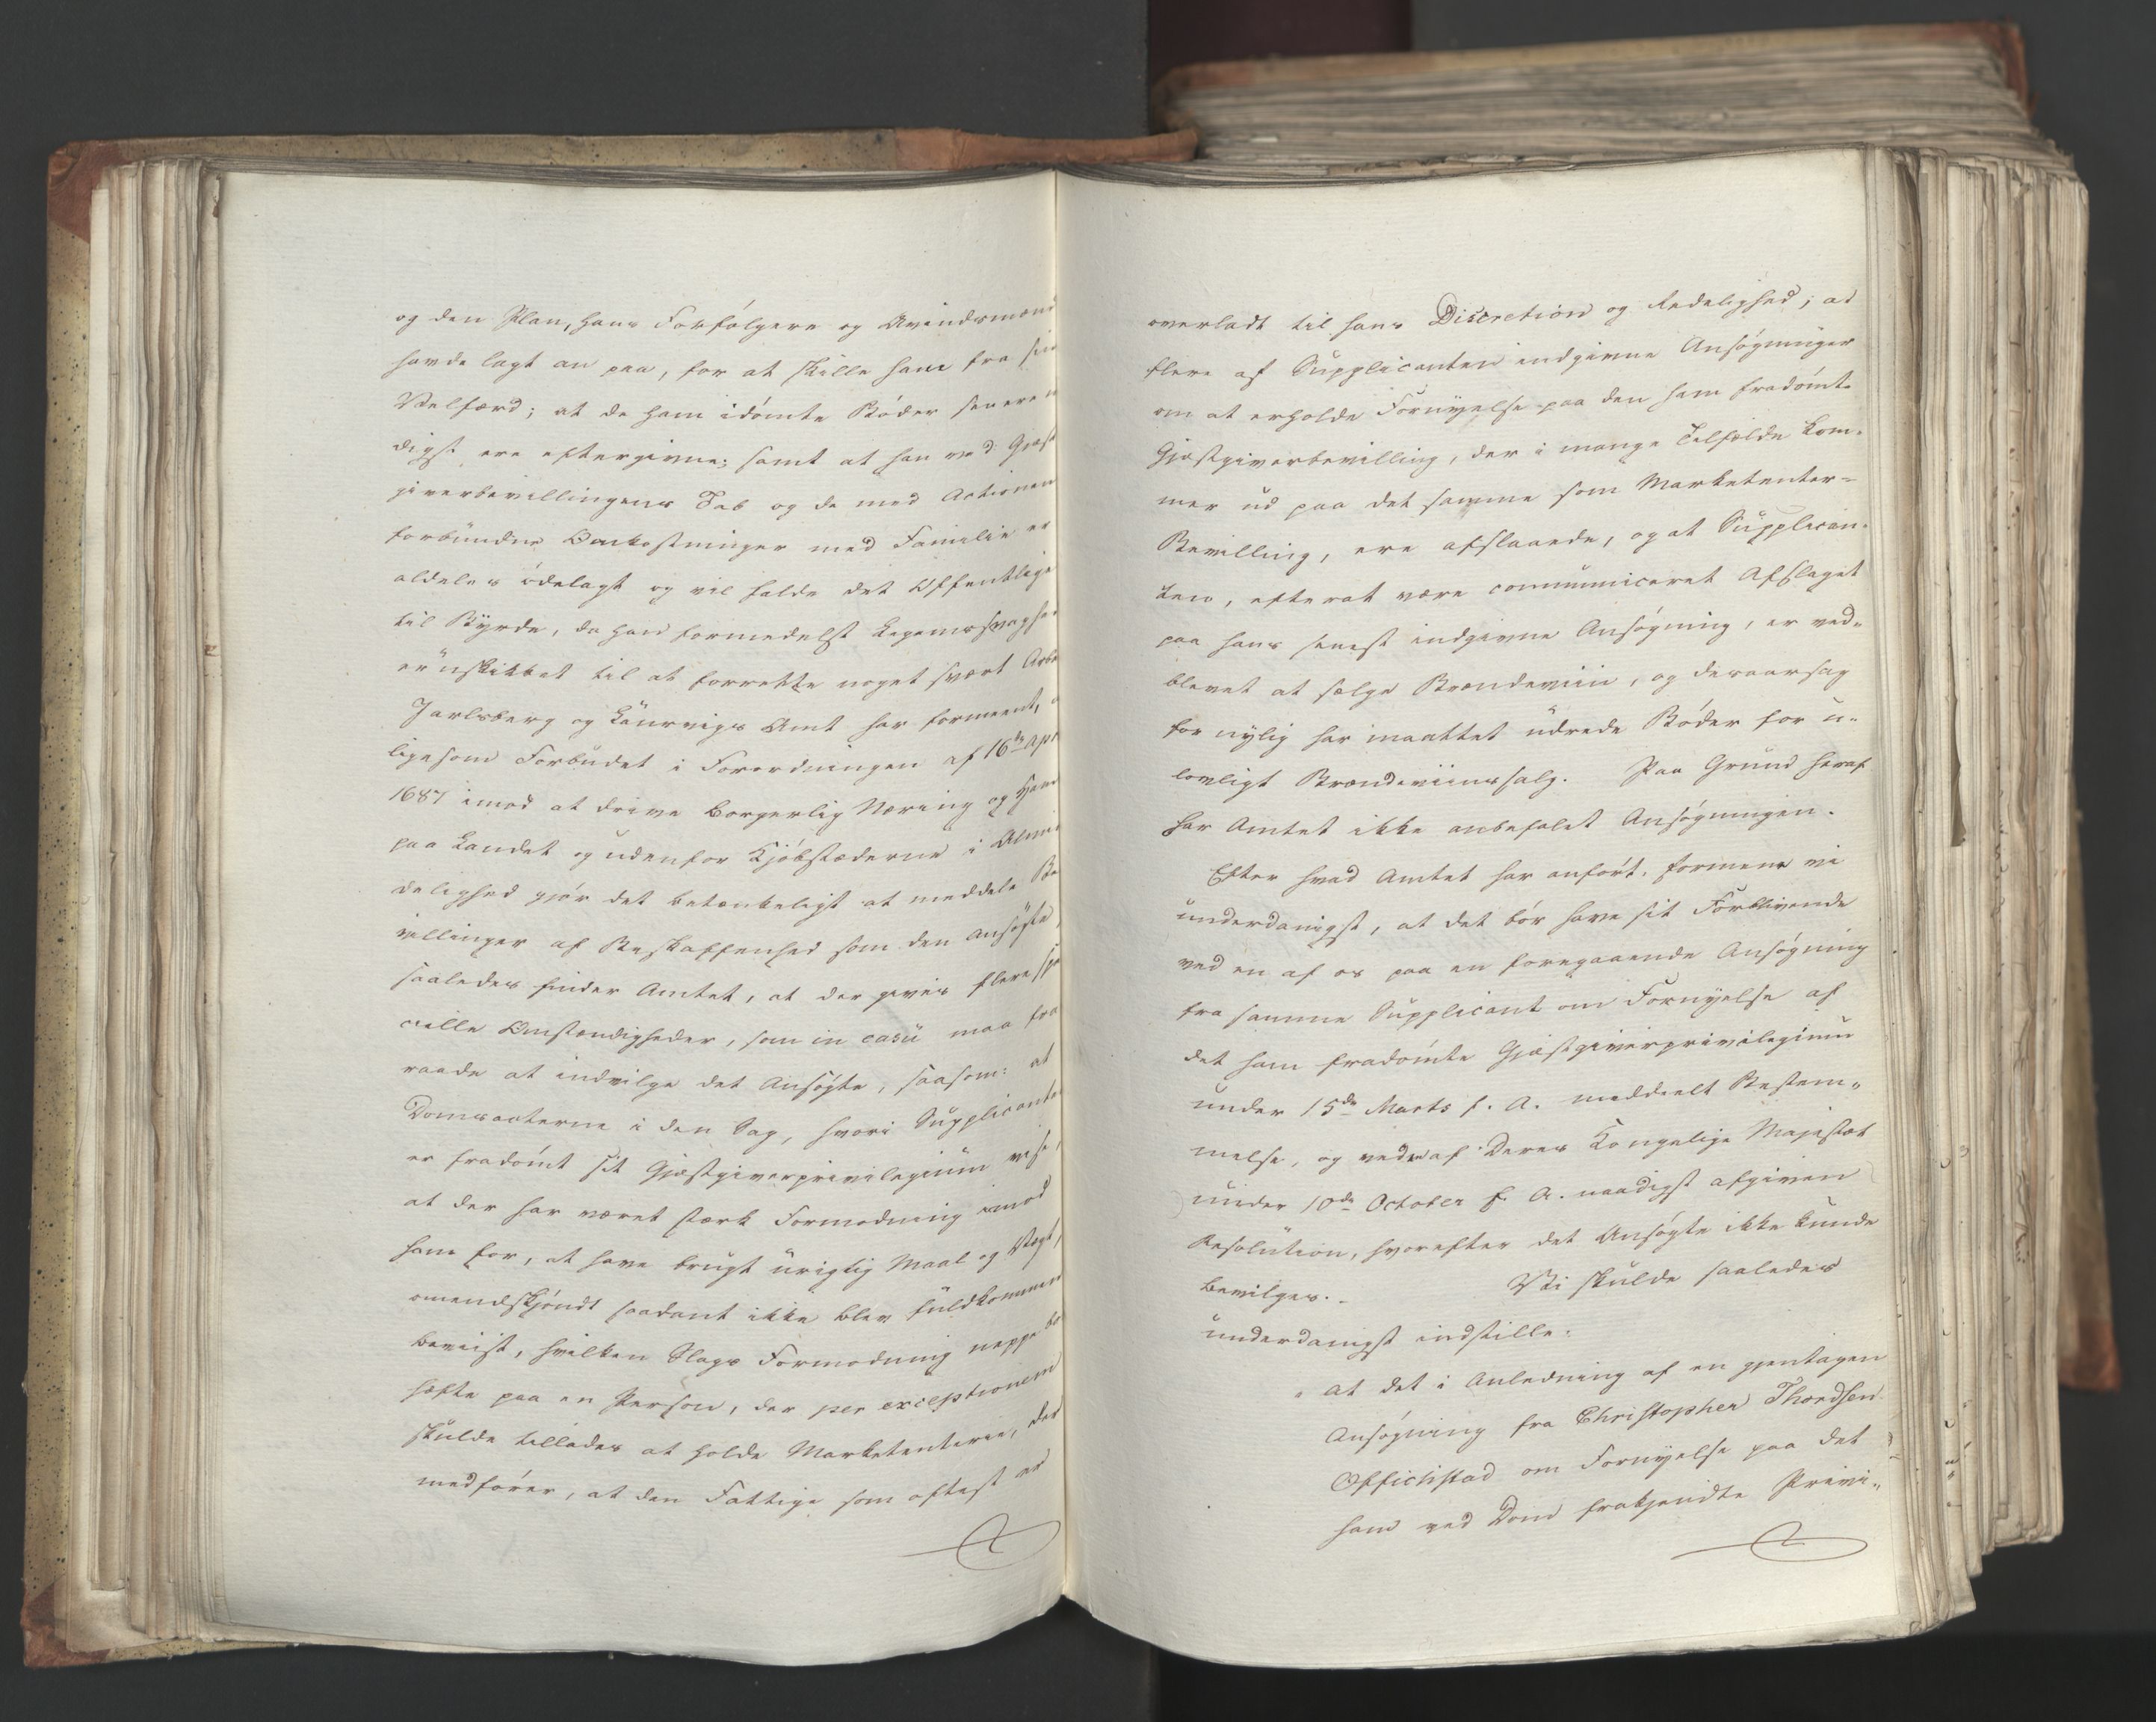 og den Plan, hans Forfølgere og Avindsmænd
havde lagt an paa, for at skille ham fra sin
Velfærd; at de ham idømte Bøder senere n
digst ere eftergivne; samt at han ved Gjæst
giverbevillingens Tab og de med Actionen
forbundne Omkostninger med Familie er
aldeles ødelagt og vil falde det Offentlige
til Byrde, da han formedelst Legemssvaghe
er uskikket til at forrette noget svært Arbe
Jarlsberg og Laurvigs Amt har formeent, a
ligesom Forbudet i Forordningen af 16de Apr
1687 imod at drive borgerlig Næring og Han
paa Landet og udenfor Kjøbstæderne i Almi
delighed gjør det betænkeligt at meddele Be
villinger af Beskaffenhed som den ansøgte,
saaledes finder Amtet, at der gives flere spe
cielle Omstændigheder, som in casu maa fra
raade at indvilge det Ansøgte, saasom: at
Domsacterne i den Sag, hvori Supplicanten
er fradømt sit Gjæstgiverprivilegium vise,
at der har været stærk Formodning imod
ham for, at have brugt urigtig Maal og Vægt,
omendskjøndt saadant ikke blev fuldkommen
beviist, hvilken Slags Formodning neppe bø
hæfte paa en Person, der per exceptionem
skulde tillades at holde Marketenteri, der
medfører, at den Fattige som oftest er
overladt til hans Discretion og Redelighed; at
flere af Supplicanten indgivne Ansøgninger
om at erholde Fornyelse paa den ham fradømte
Gjæstgiverbevilling, der i mange Tilfælde kom-
mer ud paa det samme som Marketenter-
Bevilling, ere afslaaede, og at Supplican-
ten, efterat være communiceret Afslaget
paa hans senest indgivne Ansøgning, er ved-
blevet at sælge Brændeviin, og desaarsag
for nylig har maattet udrede Bøder for u-
lovligt Brændeviinssalg. Paa Grund heraf
har Amtet ikke anbefalet Ansøgningen.
Efter hvad Amtet har anført, formene vi
underdanigst, at det bør have sit Forblivende
ved en af os paa en foregaaende Ansøgning
fra samme Supplicant om Fornyelse af
det ham fradømte Gjæstgiverprivilegium
under 15de Marts f. A. meddeelt Bestem-
melse, og ved en af Deres Kongelige Majestæt
under 10de October f. A. naadigst afgiven
Resolution, hvorefter det Ansøgte ikke kunde
bevilges. Vi skulde saaledes
underdanigst indstille:
" At det i Anledning af en gjentagen
Ansøgning fra Christopher Thordsen
Offichstad om Fornyelse paa det
ham ved Dom frakjendte Privi-